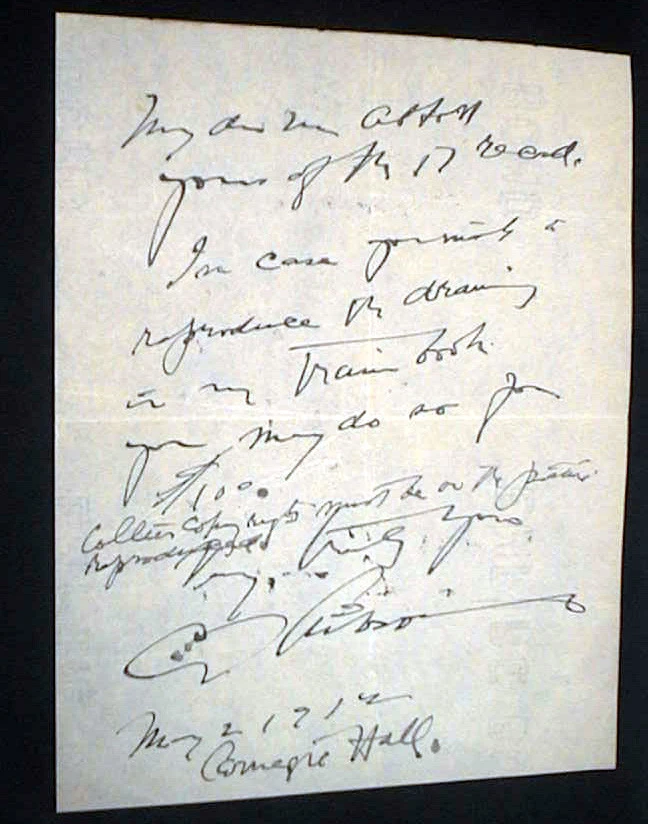 My dear Mr Abbott
yours of the 17 recevd.
In case you wish to
reproduce the drawing
in my book
you may do so for
$100.
Collier Copyright must be on the picture
reproduced.
Truly Yours
C D Gibson
May 2 1912
Carnegie Hall.